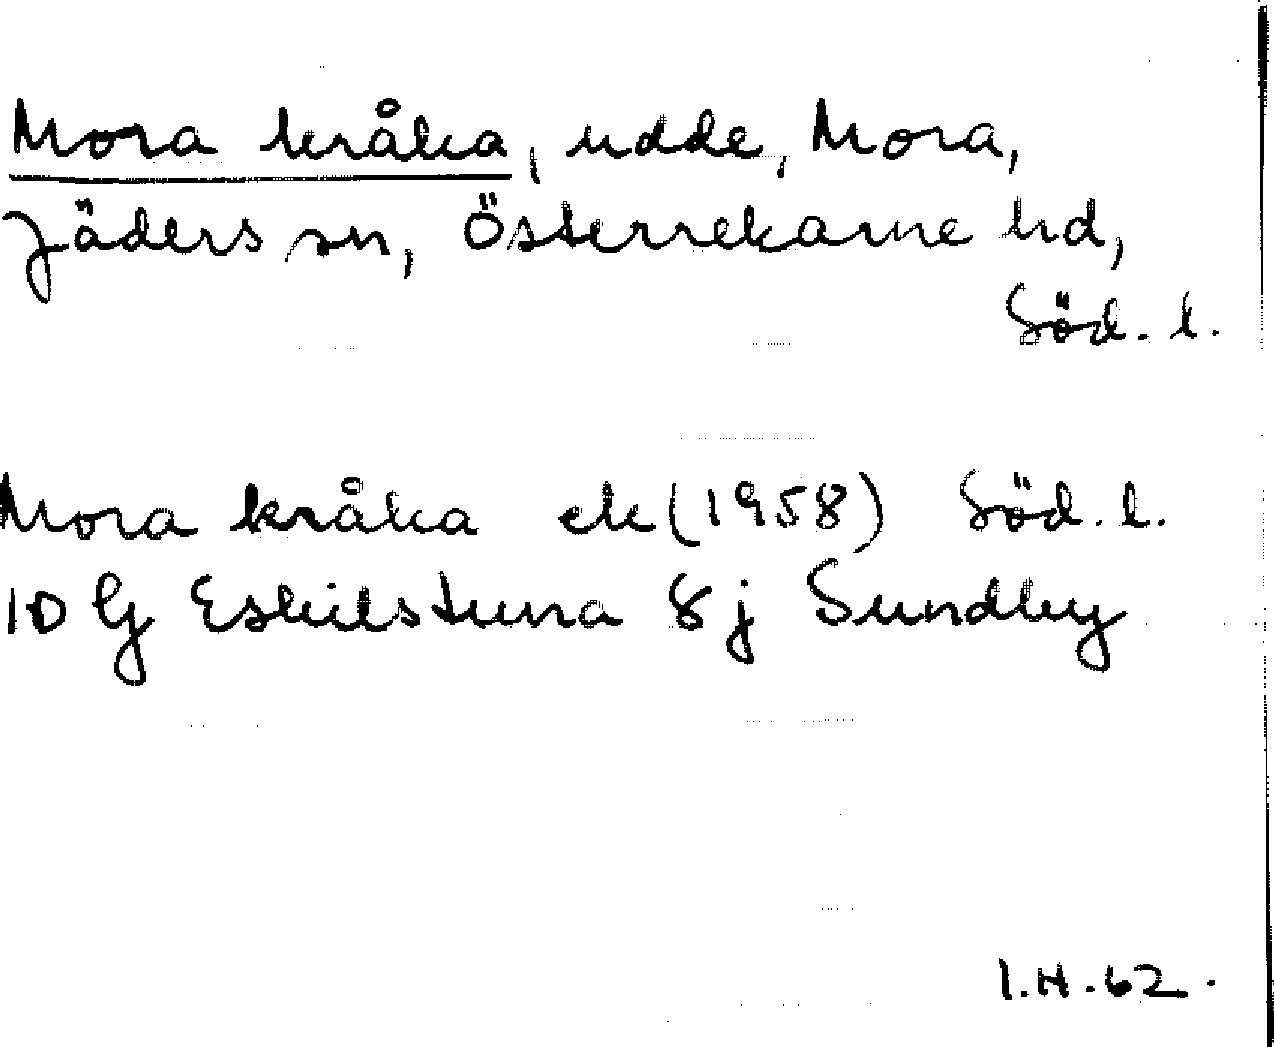 Mora kråka, udde, Mora,
Jäders sn, Österrekarne hd,
Söd. l.
Mora kråka ek (1958) Söd. l.
10 G Eskilstuna 8 j Sundby
I.H. 62.